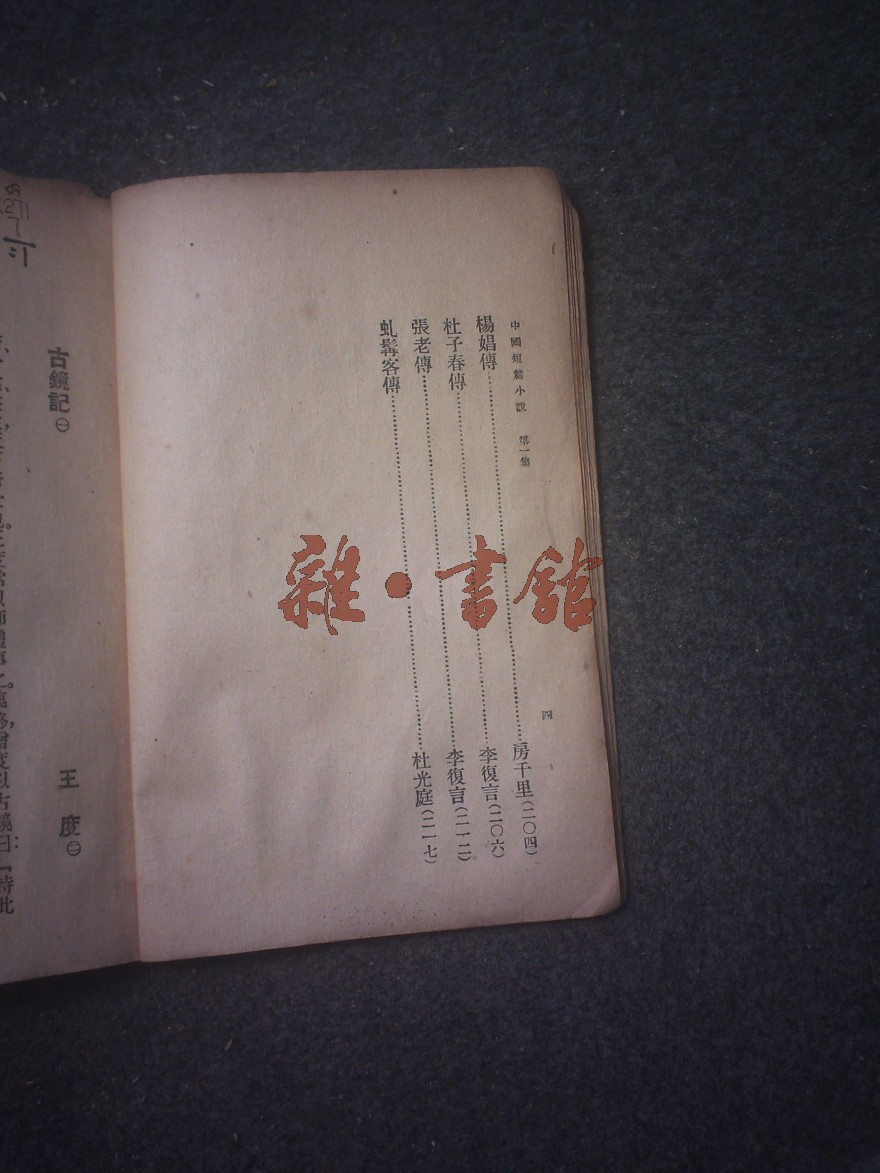 中國短篇小說 第一集
四
楊娼傳……房千里(二〇四)
杜子春傳……李復言(二〇六)
張老傳……李復言(二一二)
虬髯客傳……杜光庭(二一七)
雜·書館
古鏡記㊀
王度㊁
271
7